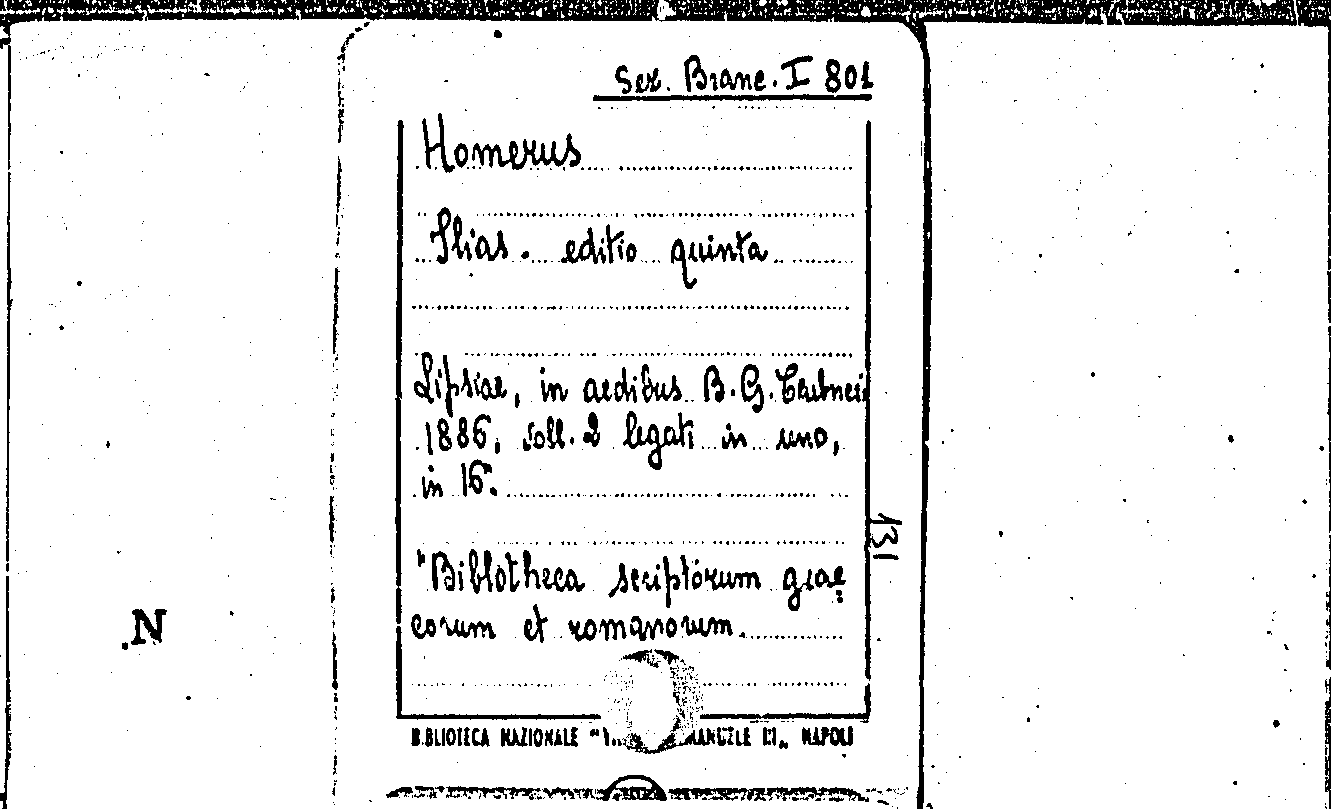 Sez. Branc. I 801
Homerus
Ilias. editio quinta
Lipsiae, in aedibus B. G. Teubneri
1886, voll. 2 legati in uno,
in 16°.
131
"Bibliotheca scriptorum grae
corum et romanorum.
N
BIBLIOTECA NAZIONALE " EMANUELE III„ NAPOLI